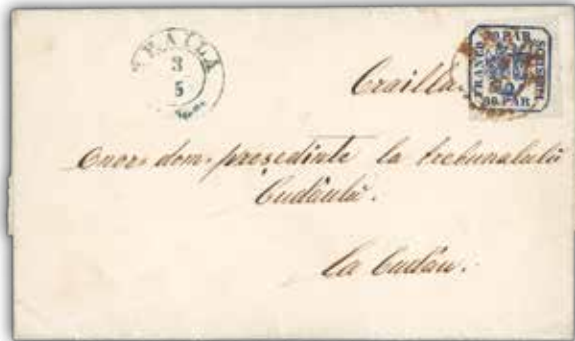 BRAILA
3
5
30 PAR
FRANCO
SCRISOREI
30 PAR
Brailla.
Onor. dom. președinte la trebunalulŭ
Budâulŭ.
La Budâu.